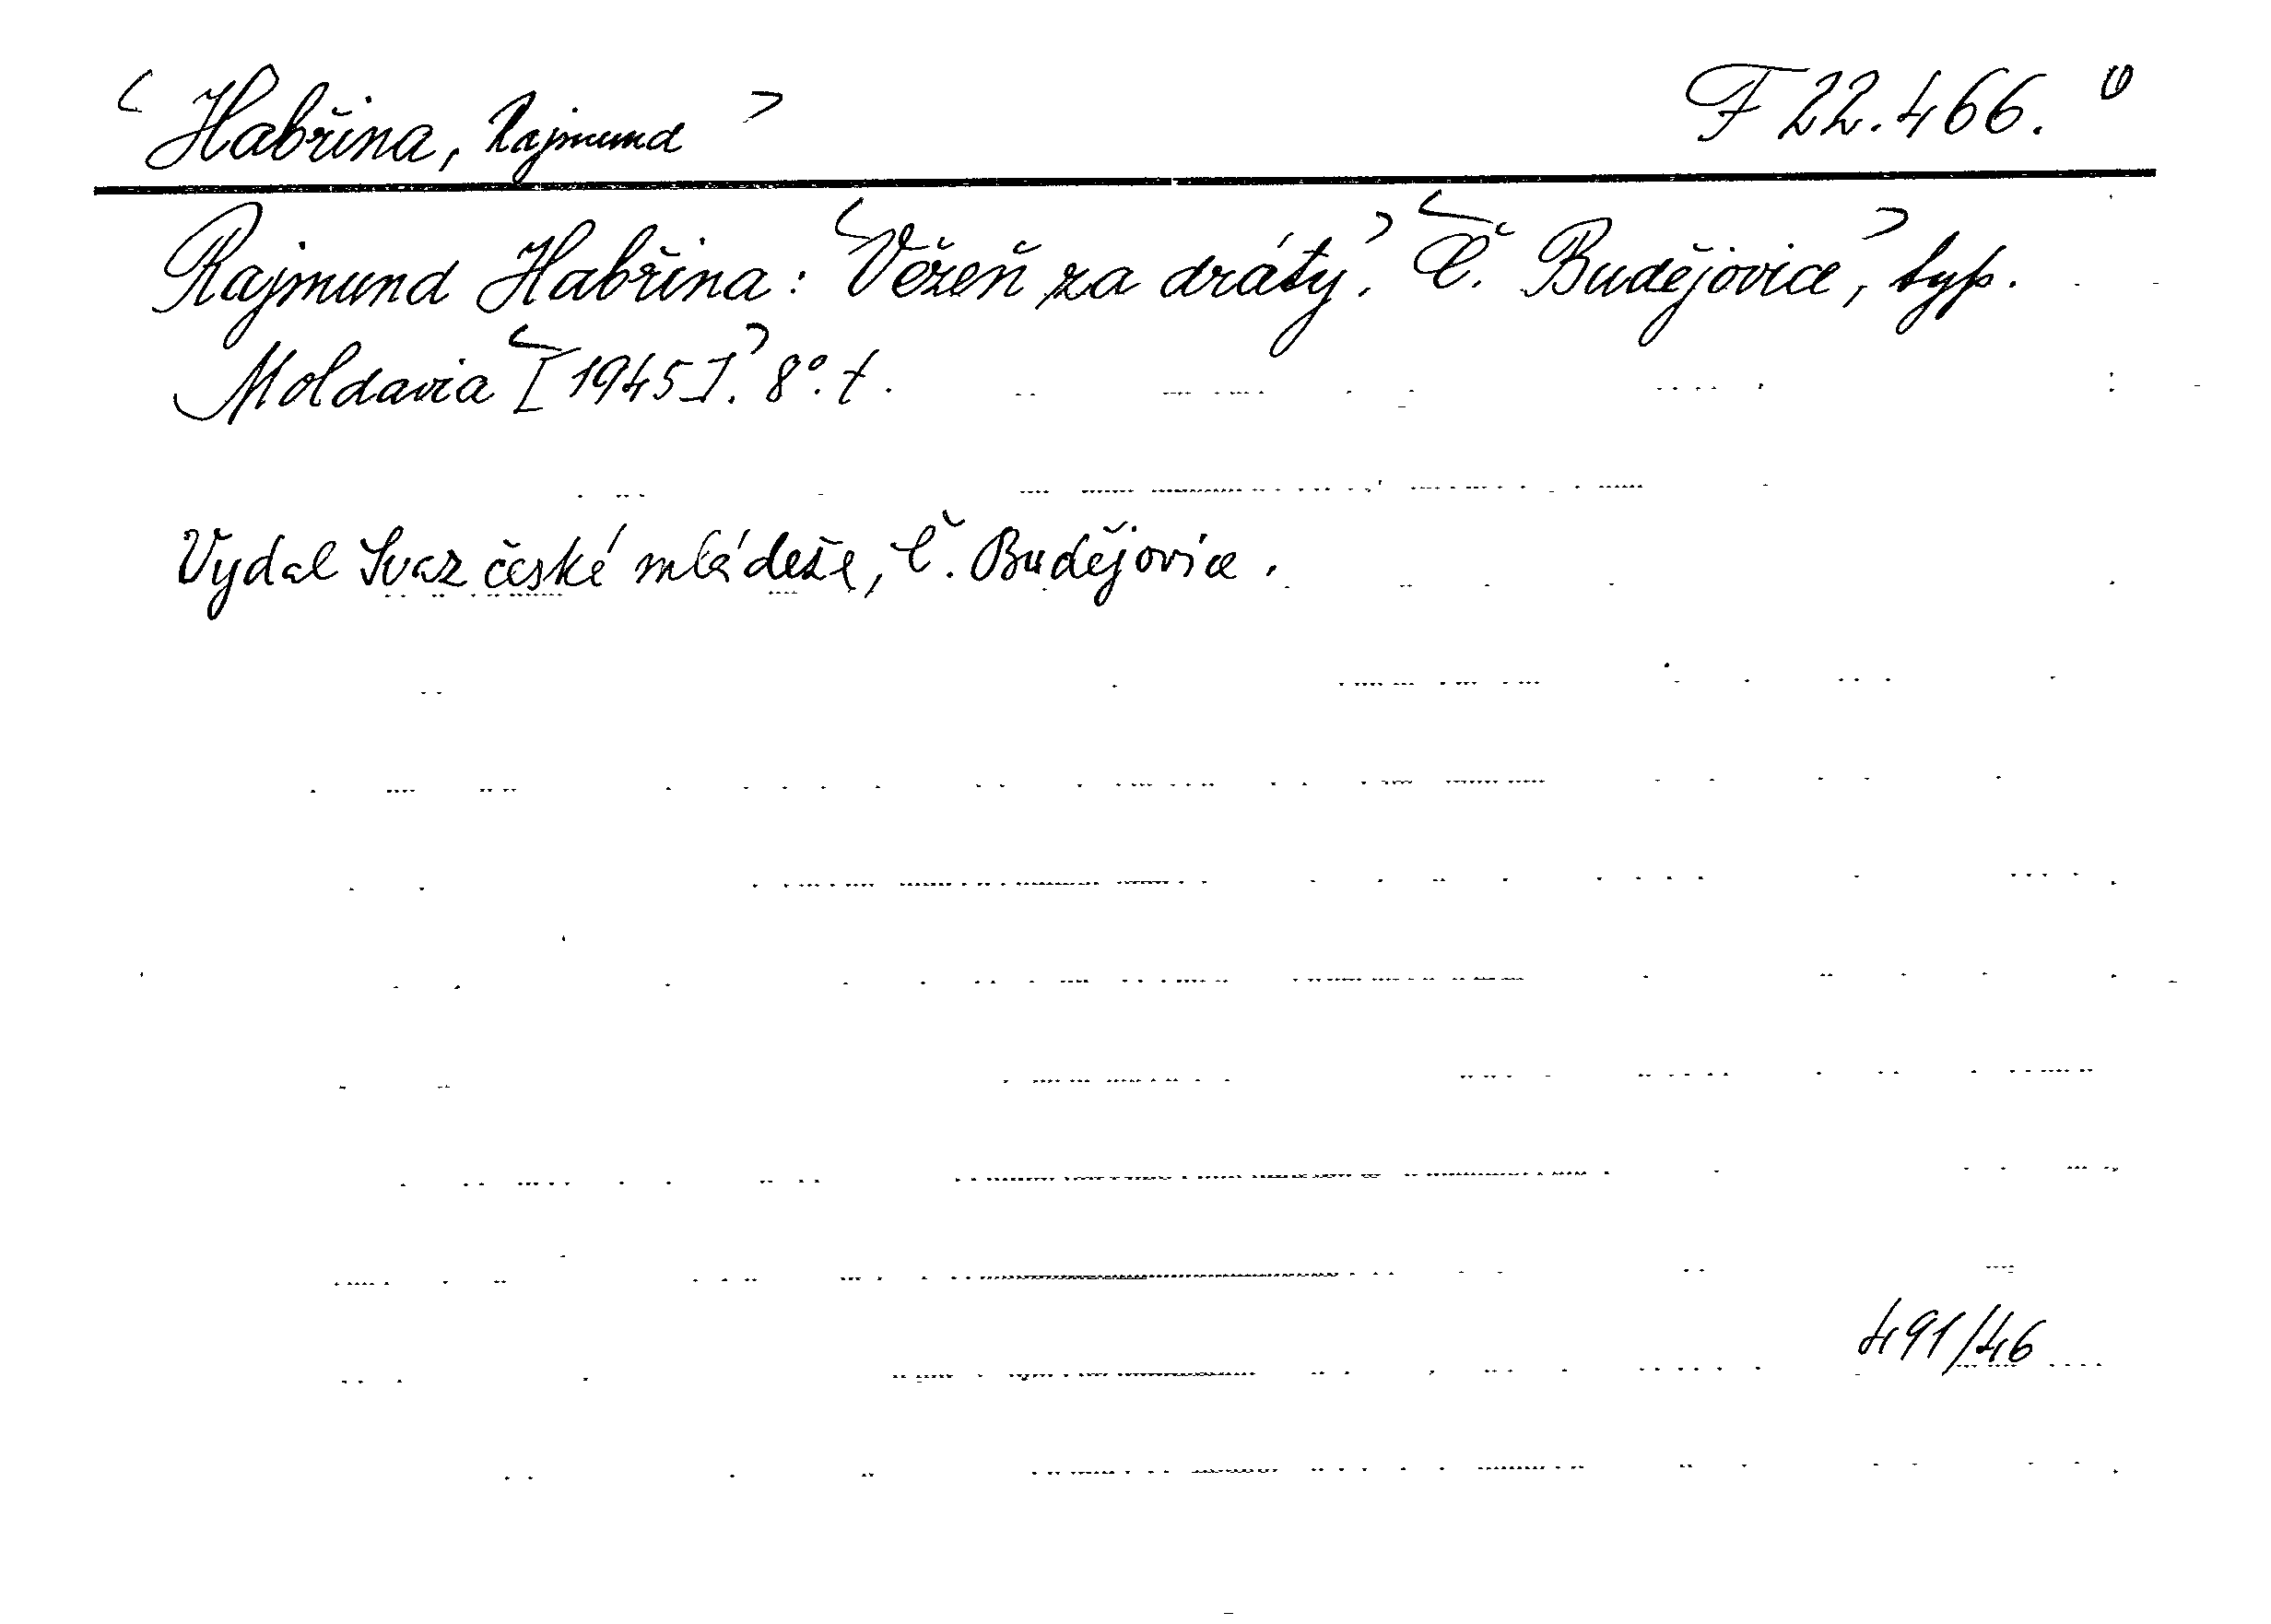 Habřina, Rajmund F 22.466.
Rajmund Habřina: Vězeň za dráty. Č. Budějovice, typ.
Moldavia [1945]. 8°. t.
Vydal Svaz české mládeže, Č. Budějovice.
491/46